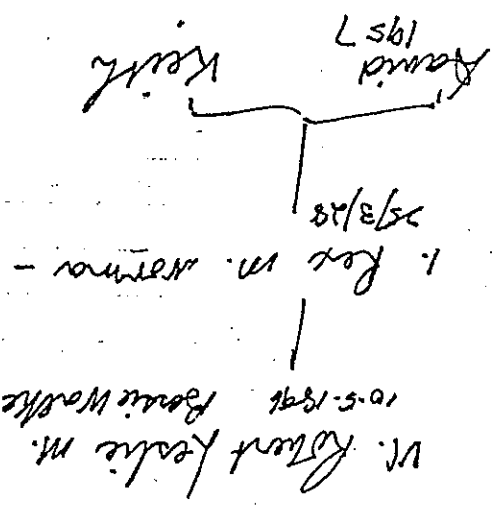 VI. Robert Leslie m.
10-5-1896 Bessie Walke
1. Rex m. Norma -
25/3/28
David Keith
1957